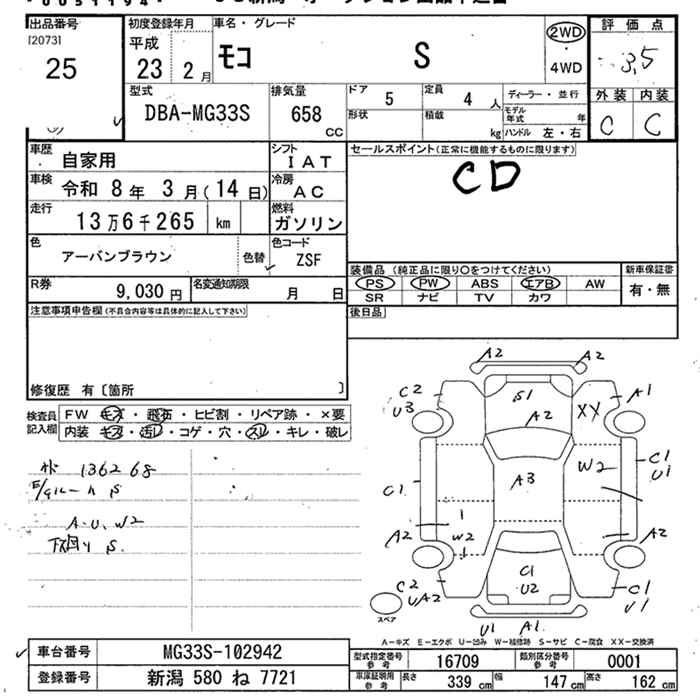 出品番号
[2073]
25
初度登録年月
平成
23 2月
車名・グレード
モコ S
2WD
・
4WD
評価点
3.5
外装 内装
C C
型式
DBA-MG33S
排気量
658
CC
ドア 5
定員 4 人
形状
積載 kg
ディーラー・並行
モデル年式 年
ハンドル 左・右
車歴 自家用
シフト IAT
車検 令和 8年 3月(14日)
冷房 AC
走行 13万6千265 km
燃料 ガソリン
色 アーバンブラウン
色替
色コード ZSF
R券 9,030円
名変通知期限 月 日
セールスポイント(正常に機能するものに限ります)
CD
装備品 (純正品に限り○をつけてください)
新車保証書
PS PW ABS エアB AW
有・無
SR ナビ TV カワ
後日品
注意事項申告欄(不具合内容等は具体的に記入して下さい)
修復歴 有〔箇所 〕
検査員記入欄
FW キズ・飛石・ヒビ割・リペア跡・×要
内装 キズ・汚レ・コゲ・穴・スレ・キレ・破レ
136268
S
A・U、W2
下廻り S.
A2 A2
C2 S1 A1
U3 A2 XX
C1
W2 U1
A3
C1
A2 W2 A2
C1
C2 U2 C1
UA2 U1
U1 A1.
スペア
A-キズ E-エクボ U-凹み W-補修跡 S-サビ C-腐食 XX-交換済
車台番号 MG33S-102942
登録番号 新潟 580 ね 7721
型式指定番号 参考 16709
類別区分番号 参考 0001
車庫証明用 参考 長さ 339 cm 幅 147 cm 高さ 162 cm